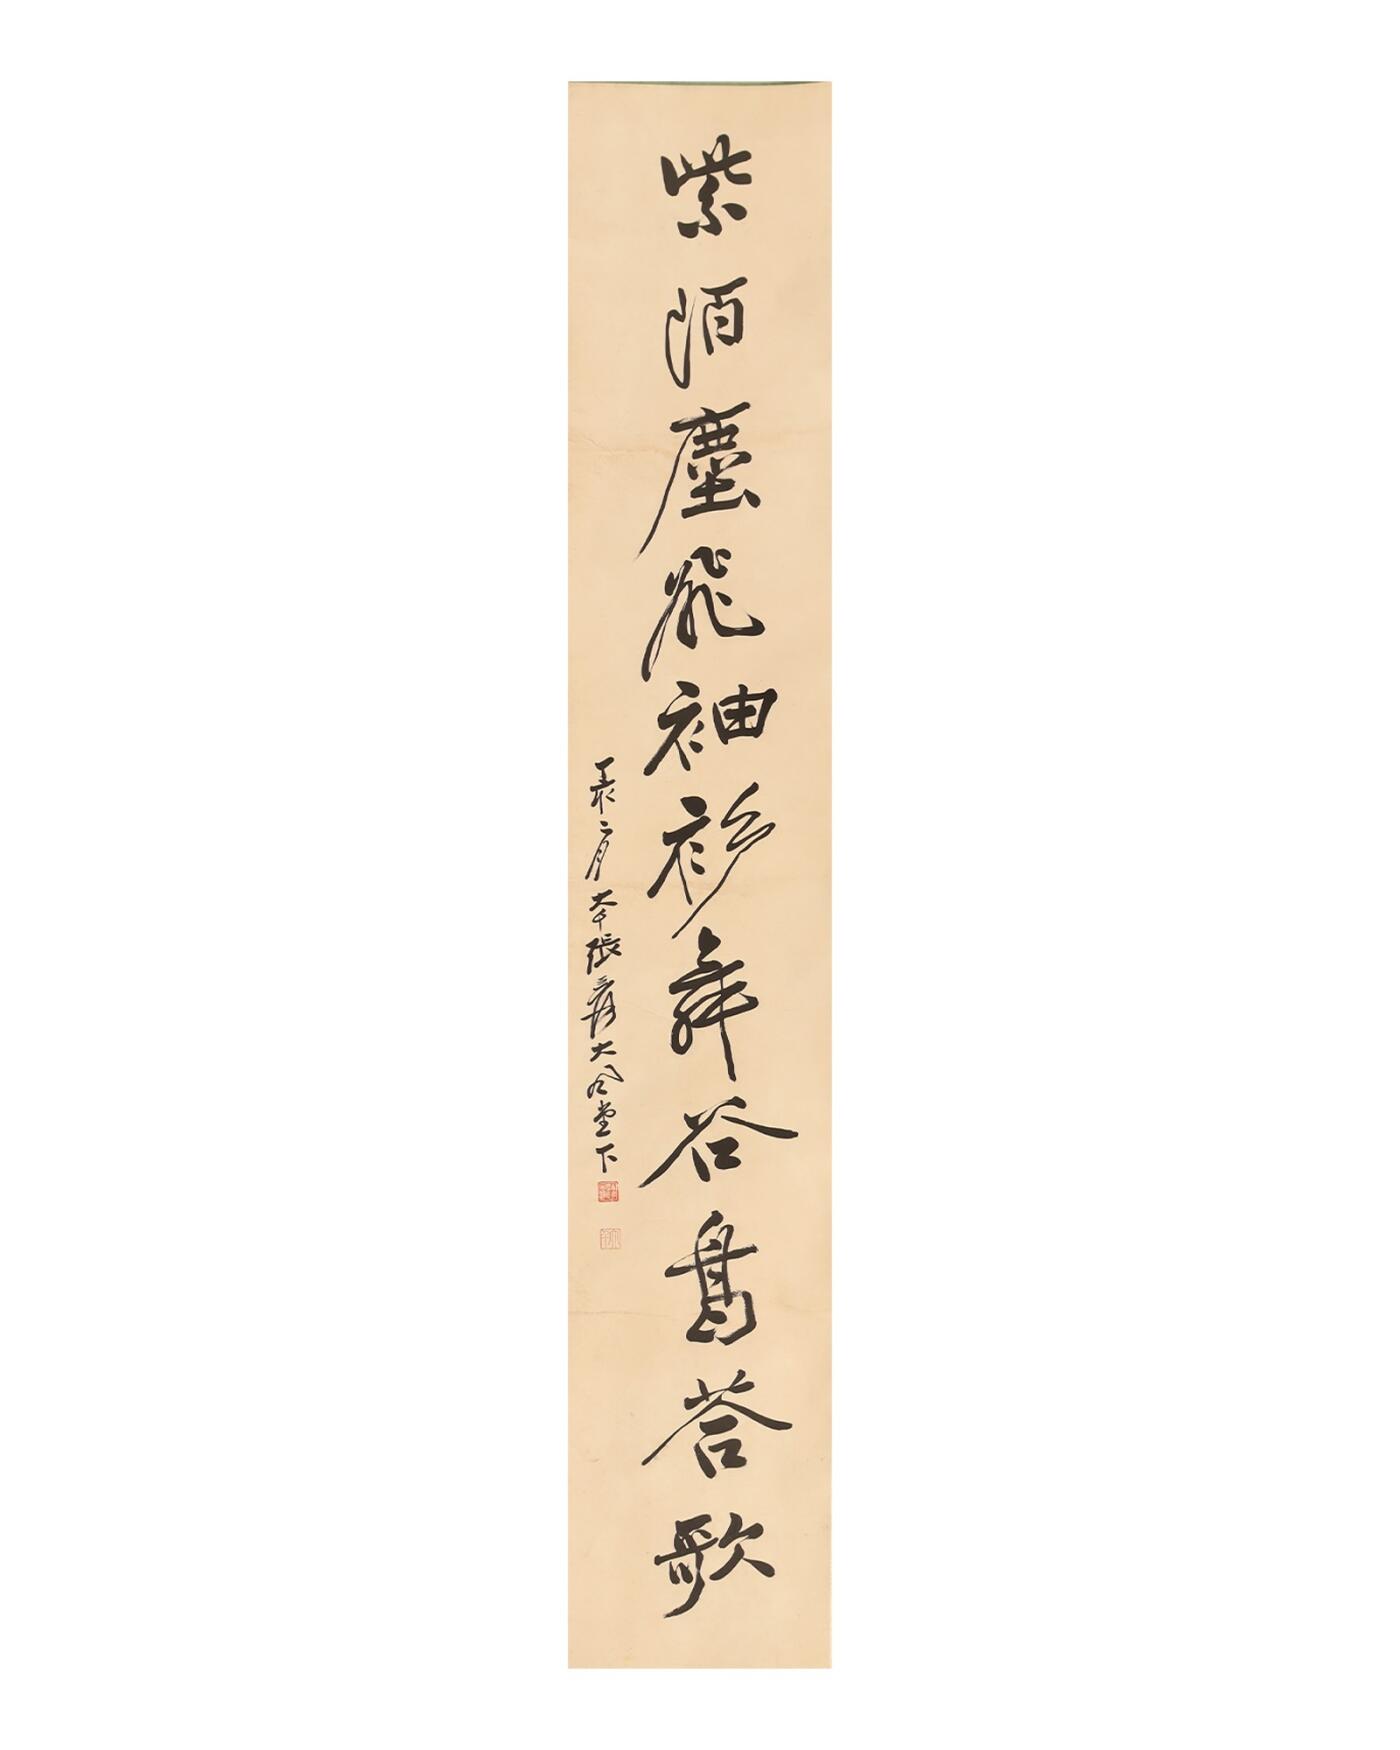 紫陌塵飛袖衫舞谷鳥答歌
丁亥二月大千張爰大風堂下